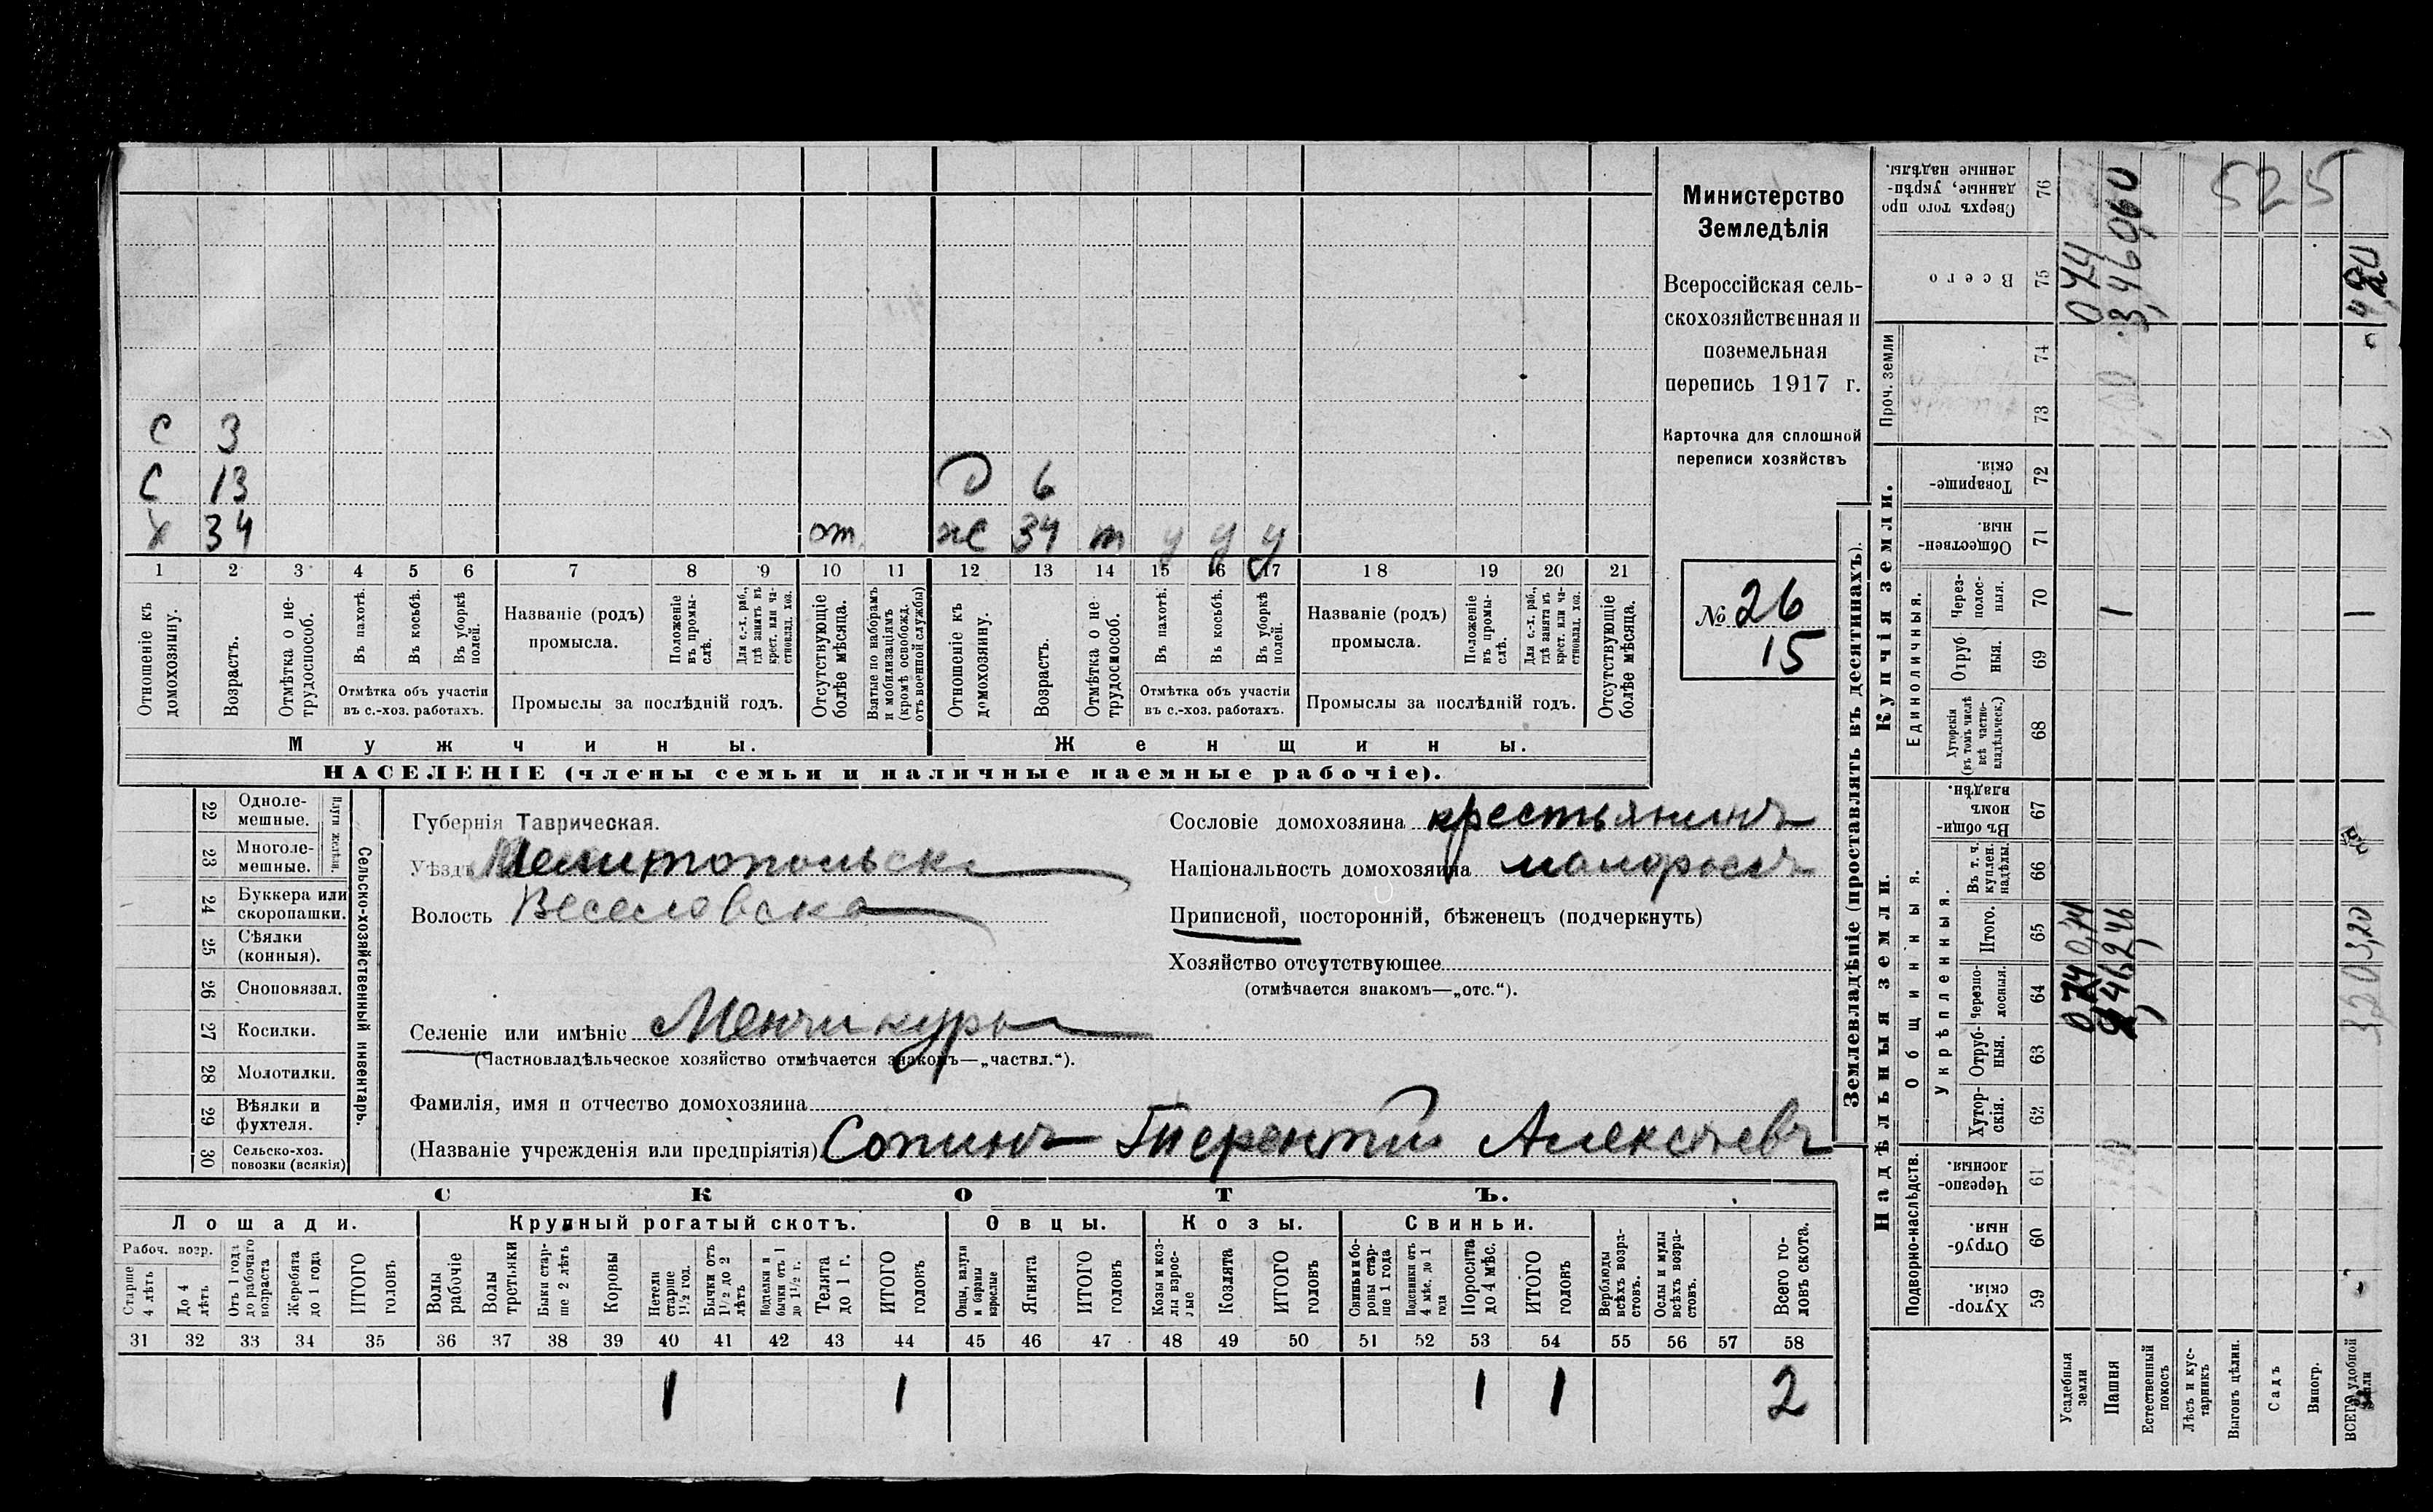 Министерство
Земледѣлія
Всероссійская сель-
скохозяйственная и
поземельная
перепись 1917 г.
Карточка для сплошной
переписи хозяйствъ
№ 26
15
С 3
С 13 Д 6
Х 34 от. ж 34 т у у у
1 2 3 4 5 6 7 8 9 10 11 12 13 14 15 16 17 18 19 20 21
Отношеніе къ домохозяину.
Возрастъ.
Отмѣтка о не-трудоспособ.
Въ пахотѣ.
Въ косьбѣ.
Въ уборкѣ полей.
Отмѣтка объ участіи
въ с.-хоз. работахъ.
Названіе (родъ)
промысла.
Положеніе въ промы-слѣ.
Для с.-х. раб., гдѣ занятъ въ крест. или ча-стновлад. хоз.
Промыслы за послѣдній годъ.
Отсутствующіе болѣе мѣсяца.
Взятые по наборамъ и мобилизаціямъ (кромѣ освобожд. отъ военной службы)
Отношеніе къ домохозяину.
Возрастъ.
Отмѣтка о не трудоспособ.
Въ пахотѣ.
Въ косьбѣ.
Въ уборкѣ полей.
Отмѣтка объ участіи
въ с.-хоз. работахъ.
Названіе (родъ)
промысла.
Положеніе въ промы-слѣ.
Для с.-х. раб., гдѣ занятъ въ крест. или ча-стновлад. хоз.
Промыслы за послѣдній годъ.
Отсутствующіе болѣе мѣсяца.
Мужчины. Женщины.
НАСЕЛЕНІЕ (члены семьи и наличные наемные рабочіе).
22 Одноле-мешные.
23 Многоле-мешные.
Плуги желѣзн.
24 Буккера или скоропашки.
25 Сѣялки (конныя).
26 Сноповязал.
27 Косилки.
28 Молотилки.
29 Вѣялки и фухтеля.
30 Сельско-хоз. повозки (всякія)
Сельско-хозяйственный инвентарь.
Губернія Таврическая.
Уѣздъ Мелитопольск
Волость Веселовска
Селеніе или имѣніе Менчикуры
(Частновладѣльческое хозяйство отмѣчается знакомъ—„частвл.“).
Сословіе домохозяина крестьянинъ
Національность домохозяина малороссъ
Приписной, посторонній, бѣженецъ (подчеркнуть)
Хозяйство отсутствующее
(отмѣчается знакомъ—„отс.“).
Фамилія, имя и отчество домохозяина
(Названіе учрежденія или предпріятія) Сопинъ Терентій Алексѣевъ
СКОТЪ.
Лошади. Крупный рогатый скотъ. Овцы. Козы. Свиньи.
Рабоч. возр.
Старше 4 лѣтъ
До 4 лѣтъ
Отъ 1 года до рабочаго возраста
Жеребята до 1 года
ИТОГО головъ
Волы рабочіе
Волы третьяки
Быки стар-ше 2 лѣтъ
Коровы
Нетели старше 1½ год.
Бычки отъ 1½ до 2 лѣтъ
Нетелки и бычки отъ 1 до 1½ г.
Телята до 1 г.
ИТОГО головъ
Овцы, валухи и бараны взрослые
Ягнята
ИТОГО головъ
Козы и коз-лы взрос-лые
Козлята
ИТОГО головъ
Свиньи и бо-ровы стар-ше 1 года
Подсвинки отъ 4 мѣс. до 1 года
Поросята до 4 мѣс.
ИТОГО головъ
Верблюды всѣхъ возра-стовъ.
Ослы и мулы всѣхъ возра-стовъ.
Всего го-ловъ скота.
31 32 33 34 35 36 37 38 39 40 41 42 43 44 45 46 47 48 49 50 51 52 53 54 55 56 57 58
1 1 1 1 2
Землевладѣніе (проставлять въ десятинахъ).
Надѣльныя земли. Купчія земли. Проч. земли
Подворно-наслѣдств.
Общинныя.
Укрѣпленныя.
Единоличныя.
Хутор-скія. 59
Отруб-ныя 60
Черезпо-лосныя. 61
Хутор-скія. 62
Отруб-ныя. 63
Черезпо-лосныя. 64
Итого. 65
Въ т. ч. куплен. надѣлы. 66
Въ общи-номъ владѣн. 67
Хуторскія (въ томъ числѣ всѣ частно-владѣльческ.) 68
Отруб ныя. 69
Через-полос-ныя. 70
Обществен-ныя. 71
Товарище-скія. 72
73
74
Всего 75
Сверхъ того про данные, укрѣп-ленные надѣлы. 76
Усадебныя земли
Пашня
Естественный покосъ
Лѣсъ и кус-тарникъ
Выгонъ цѣлин.
Садъ
Виногр.
ВСЕГО удобной земли
0,74 0,74
2,46
1
3,46
3,20 3,20
1
4,20
525